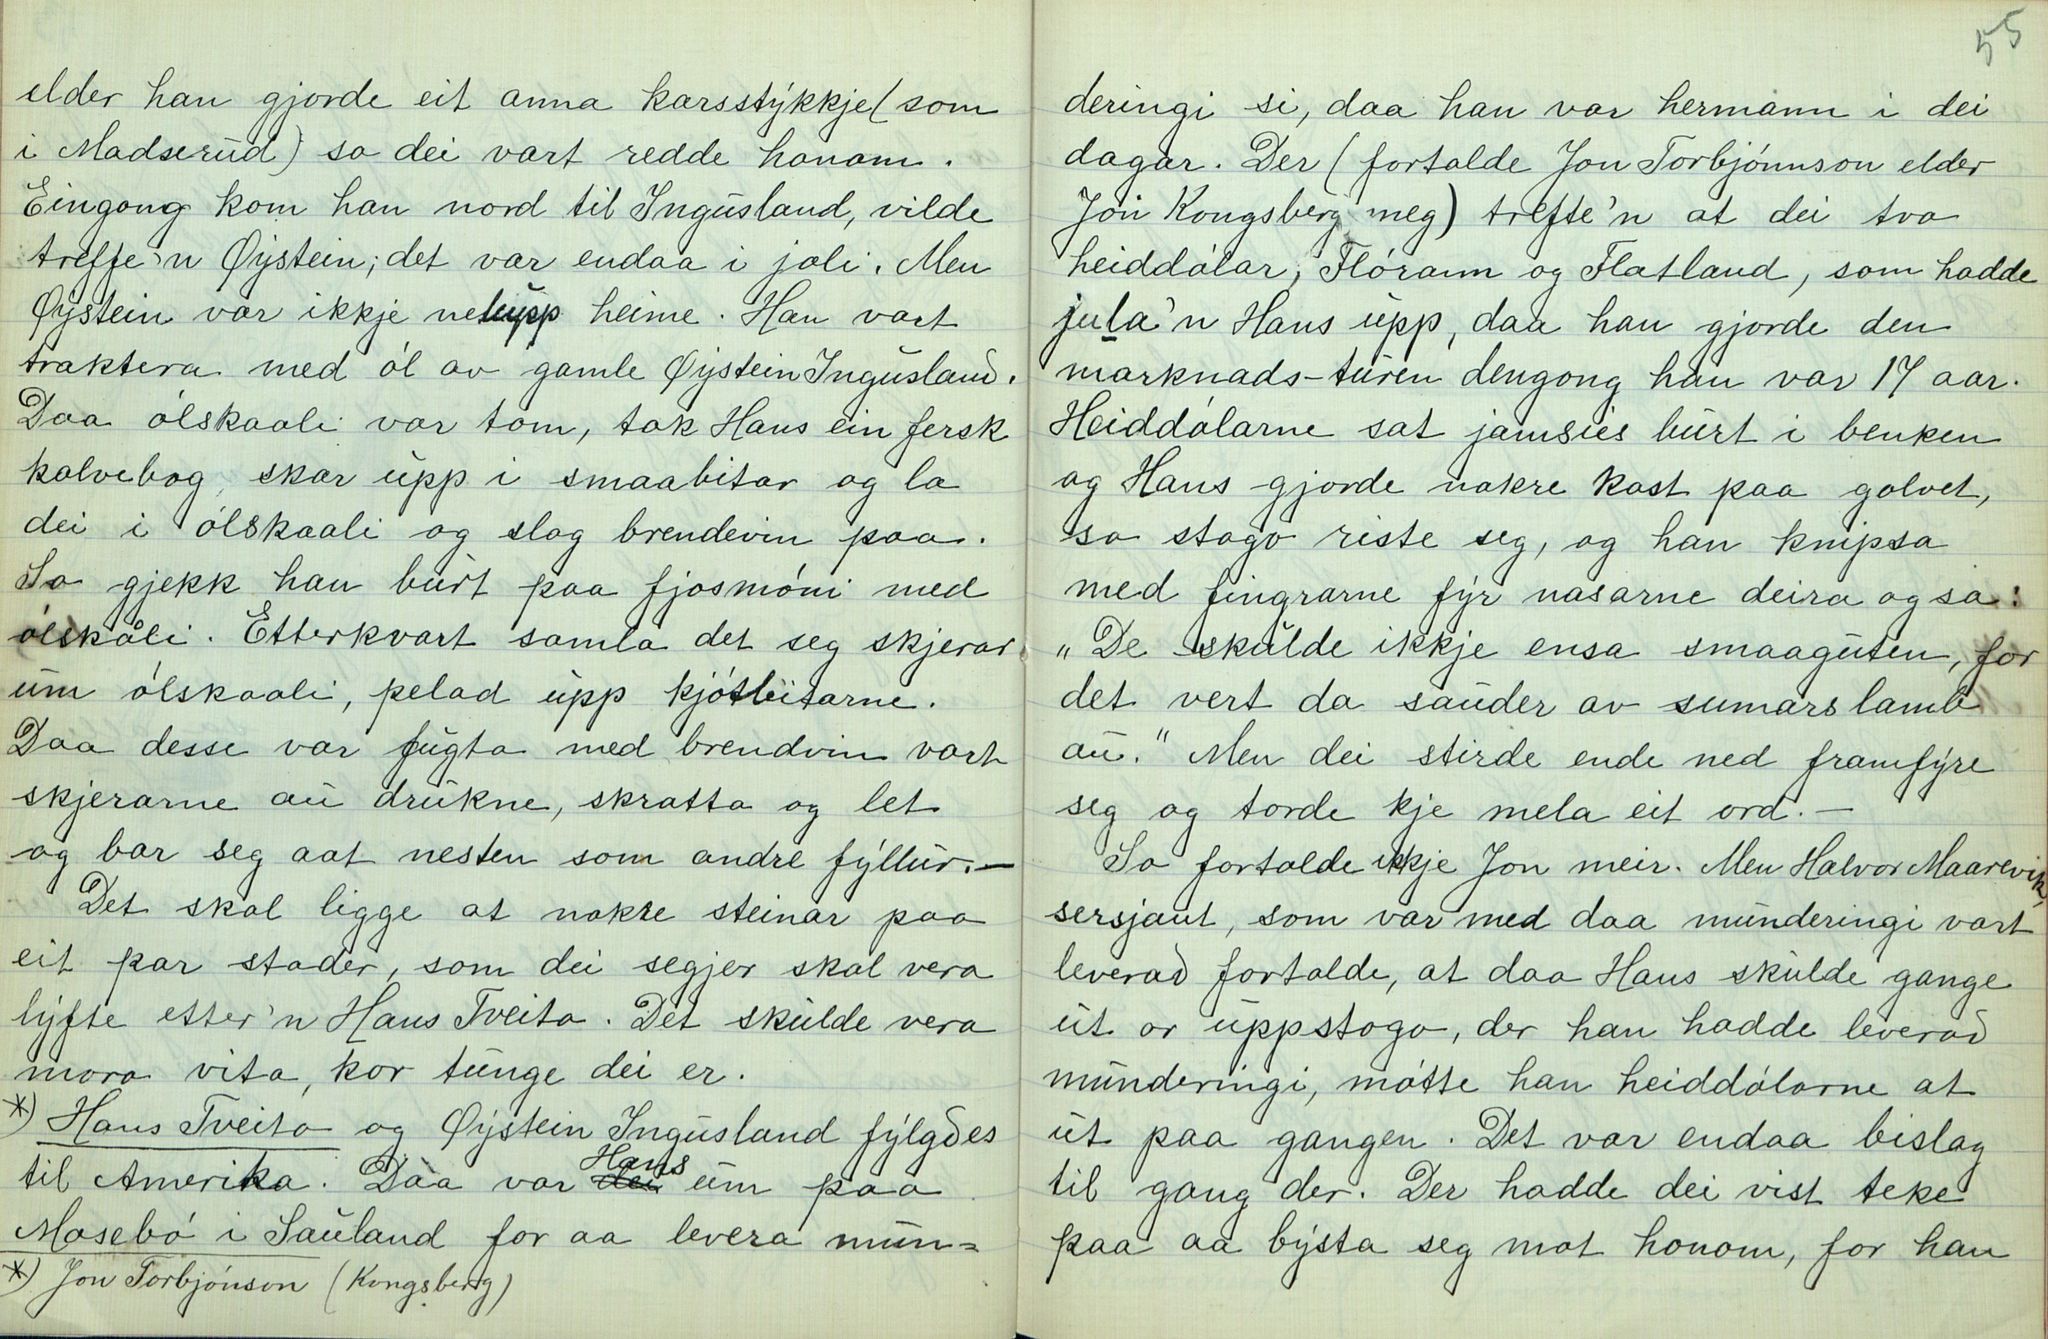 elder han gjorde eit anna karsstýkkje (som
i Madserud) so dei vart redde honom.
Eingong kom han nord til Ingusland, vilde
treffe'n Øystein; det var endaa i joli. Men
Øystein var ikkje netupp heime. Han vart
traktera med ól av gamle Øystein Ingusland.
Daa ólskaali var tom, tok Hans ein fersk
kalvebog, skar upp i smaabitar og la
dei i ólskaali og slog brendevin paa.
So gjekk han burt paa fjosmóni med
ólskåli. Etterkvart samla det seg skjerar
um ólskaali, pelad upp kjótbitarne.
Daa desse var fugta med brendvin vart
skjerarne au drukne, skratta og let
og bar seg aat nesten som andre fýllur. —
Det skal ligge at nokre steinar paa
eit par stader, som dei segjer skal vera
lýfte etter'n Hans Tveito. Det skulde vera
mora vita, kor tunge dei er.
*) Hans Tveito og Øystein Ingusland fýlgdes
til Amerika. Daa var dei Hans um paa
Mosebó i Sauland for aa levera mun=
*) Jon Torbjónson (Kongsberg)
55
deringi si, daa han var hermann i dei
dagar. Der (fortalde Jon Torbjónnson elder
Jon Kongsberg meg) trefte'n at dei tvo
heiddólar, Flórann og Flatland, som hadde
jula'n Hans upp, daa han gjorde den
marknads-turen dengong han var 17 aar.
Heiddólarne sat jamsies burt i benken
og Hans gjorde nokre kast paa golvet,
so stogo riste seg, og han knipsa
med fingrarne fýr nasarne deira og sa:
"De skulde ikkje ensa smaaguten, for
det vert da sauder av sumarslamb
au." Men dei stirde ende ned framfýre
seg og torde kje mela eit ord. —
So fortalde ikkje Jon meir. Men Halvor Maarevik,
sersjant, som var med daa munderingi vart
leverad fortalde, at daa Hans skulde gange
ut or uppstogo, der han hadde leverad
munderingi, mótte han heiddólarne at
ut paa gangen. Det var endaa bislag
til gang der. Der hadde dei vist teke
paa aa býsta seg mot honom, for han